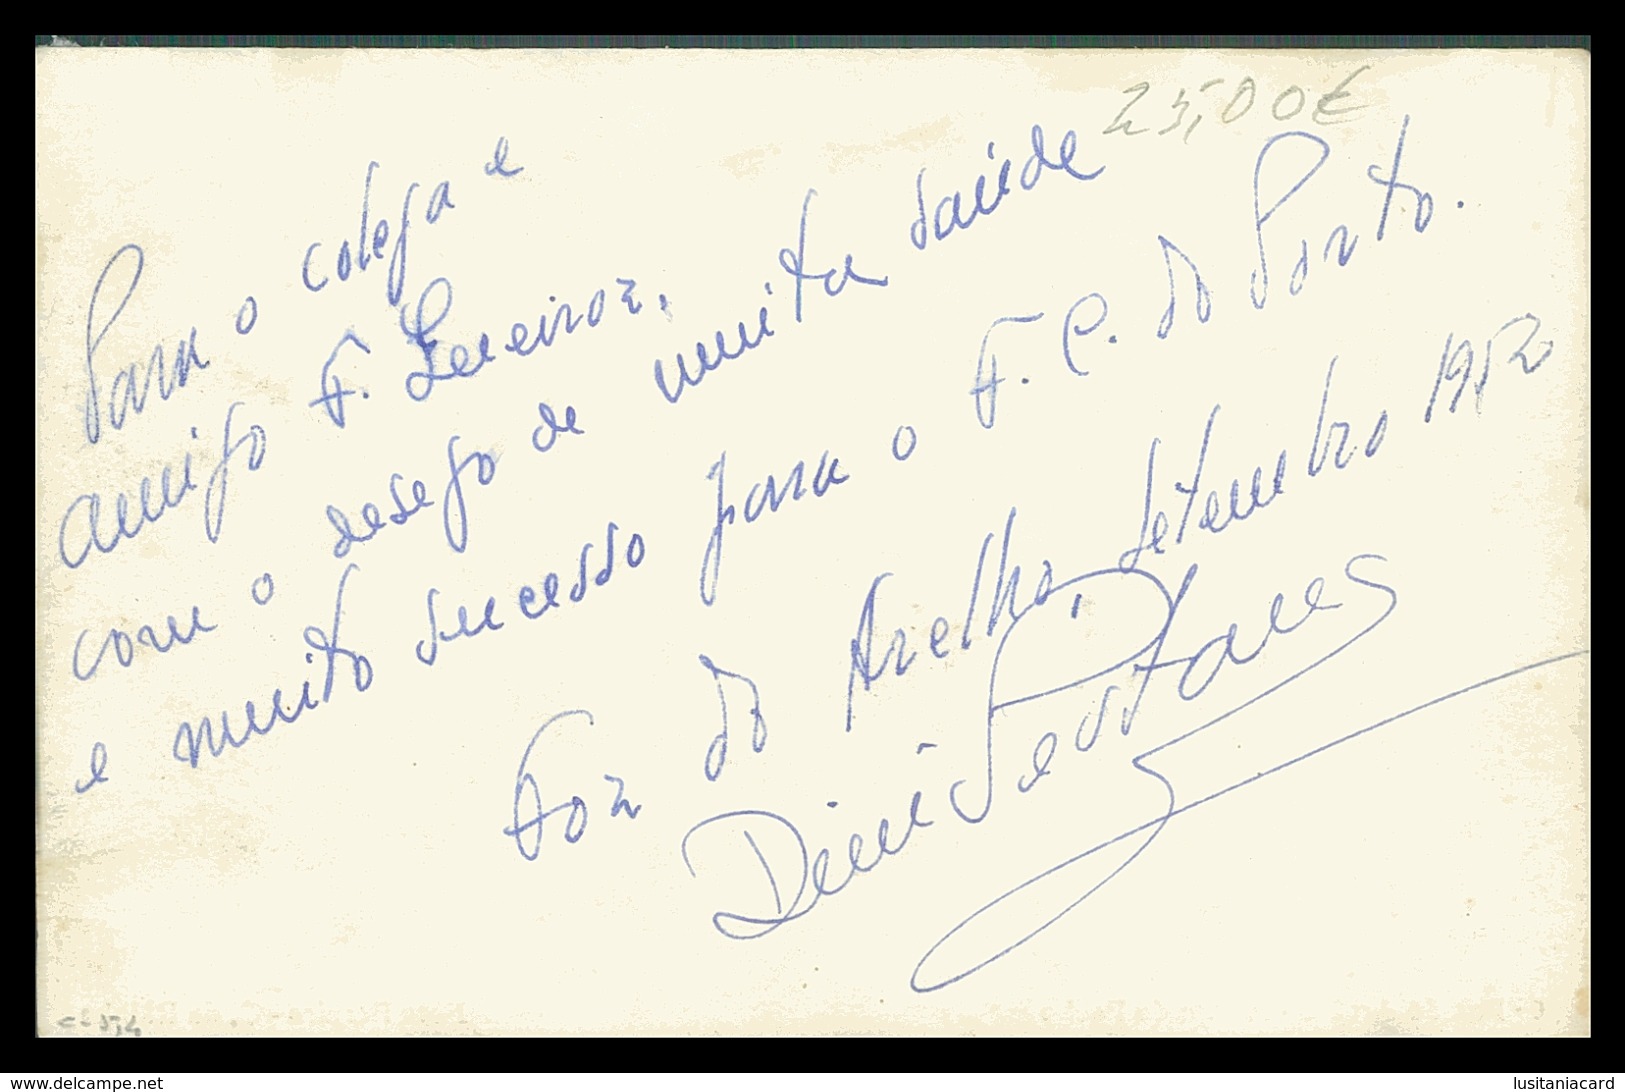 23,00€
Para o colega e
amigo F. Lereiroz,
com o desejo de muita saúde
e muito sucesso para o F. C. do Porto.
Foz do Arelho, Setembro 1952
c-5,4
www.delcampe.net
lusitaniacard